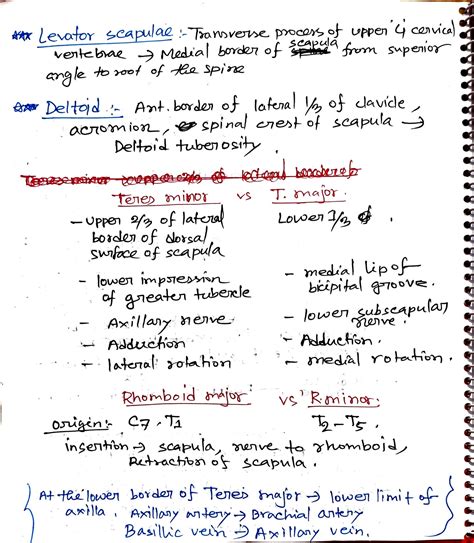 *** Levator scapulae :- Transverse process of upper '4' cervical
vertebrae → Medial border of scapula from superior
angle to root of the spine
*** Deltoid :- Ant. border of lateral 1/3 of clavicle,
acromion, spinal crest of scapula →
Deltoid tuberosity.
Teres minor vs T. major.
- Upper 2/3 of lateral border of dorsal surface of scapula
Lower 1/3
- lower impression of greater tubercle
- medial lip of bicipital groove.
- Axillary nerve
- lower subscapular nerve.
- Adduction
- Adduction.
- lateral rotation
- medial rotation.
Rhomboid major vs R. minor.
origin:- C7, T1 T2-T5.
insertion → scapula, nerve to rhomboid,
Retraction of scapula.
At the lower border of Teres major → lower limit of
axilla. Axillary artery → Brachial artery
Basillic vein → Axillary vein.